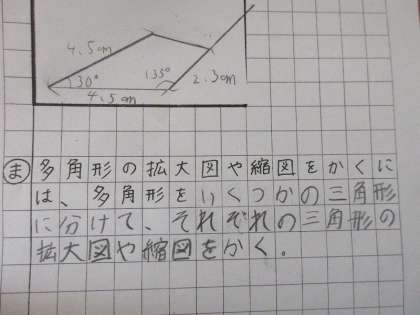 4.5cm
30°
135°
2.3cm
4.5cm
ま 多角形の拡大図や縮図をかくに
は、多角形をいくつかの三角形
に分けて、それぞれの三角形の
拡大図や縮図をかく。